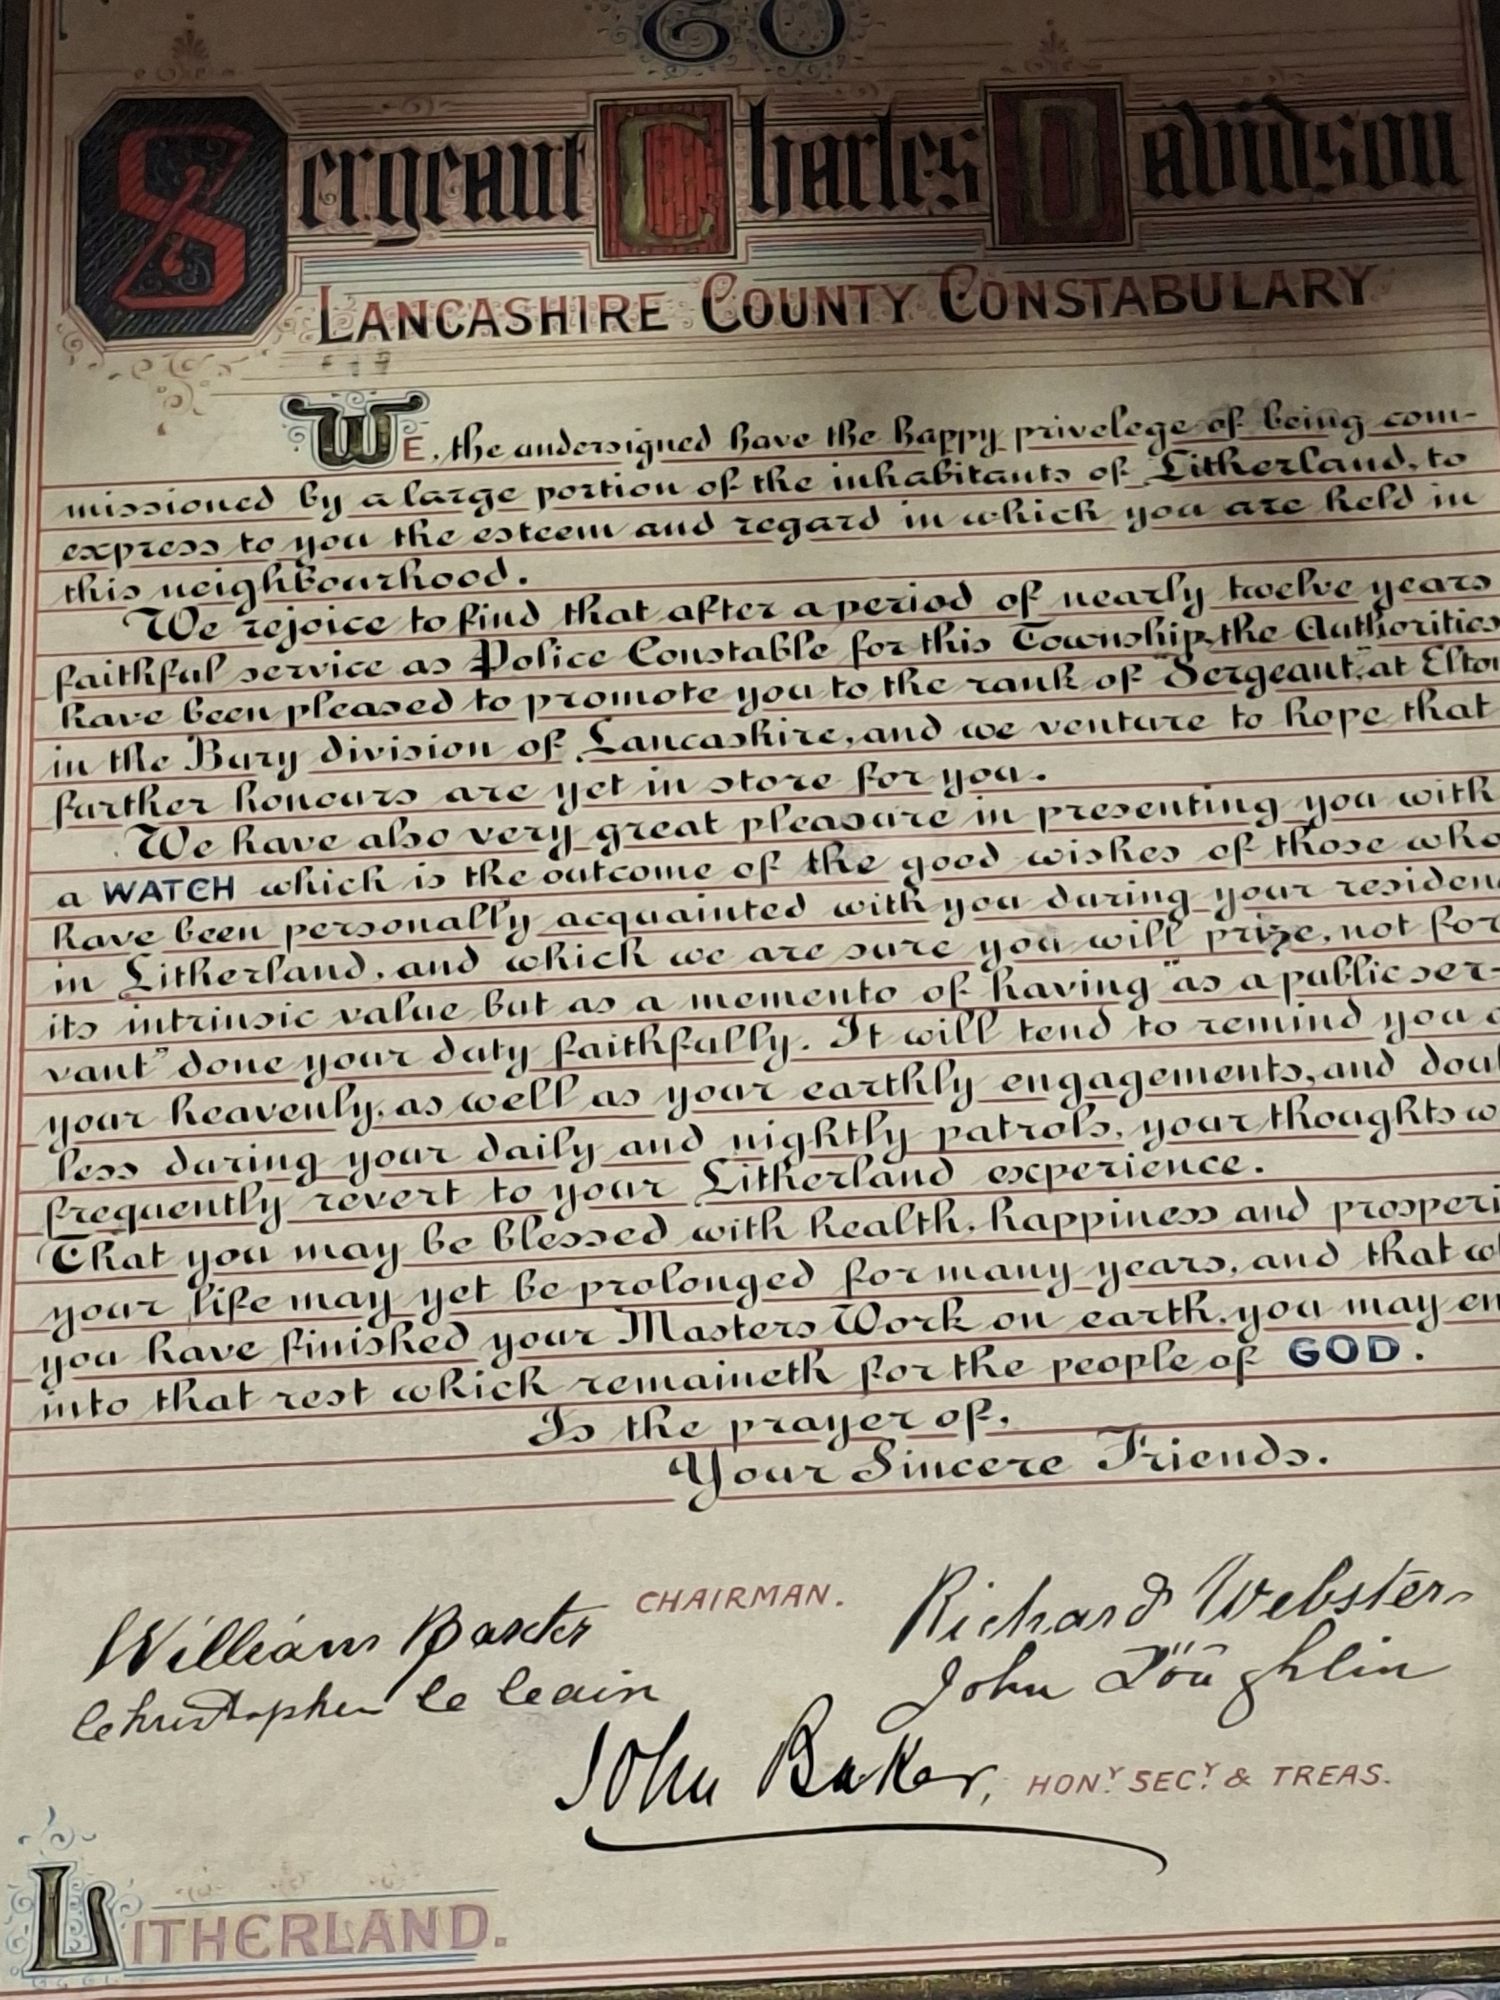 TO
Sergeant Charles Davidson
LANCASHIRE COUNTY CONSTABULARY
WE, the undersigned have the happy privelege of being com-
missioned by a large portion of the inhabitants of Litherland, to
express to you the esteem and regard in which you are held in
this neighbourhood.
We rejoice to find that after a period of nearly twelve years
faithful service as Police Constable for this Township, the Authorities
have been pleased to promote you to the rank of "Sergeant," at Elton
in the Bury division of Lancashire, and we venture to hope that
further honours are yet in store for you.
We have also very great pleasure in presenting you with
a WATCH which is the outcome of the good wishes of those who
have been personally acquainted with you during your residen
in Litherland, and which we are sure you will prize, not for
its intrinsic value but as a memento of having "as a public ser-
vant" done your duty faithfully. It will tend to remind you o
your heavenly, as well as your earthly engagements, and doub
less during your daily and nightly patrols, your thoughts w
frequently revert to your Litherland experience.
That you may be blessed with health, happiness and prosperi
your life may yet be prolonged for many years, and that w
you have finished your Masters Work on earth, you may en
into that rest which remaineth for the people of GOD.
Is the prayer of,
Your Sincere Friends.
William Baxter CHAIRMAN. Richard Webster
Christopher John Loughlin
John Baker, HONY. SECY. & TREAS.
LITHERLAND.